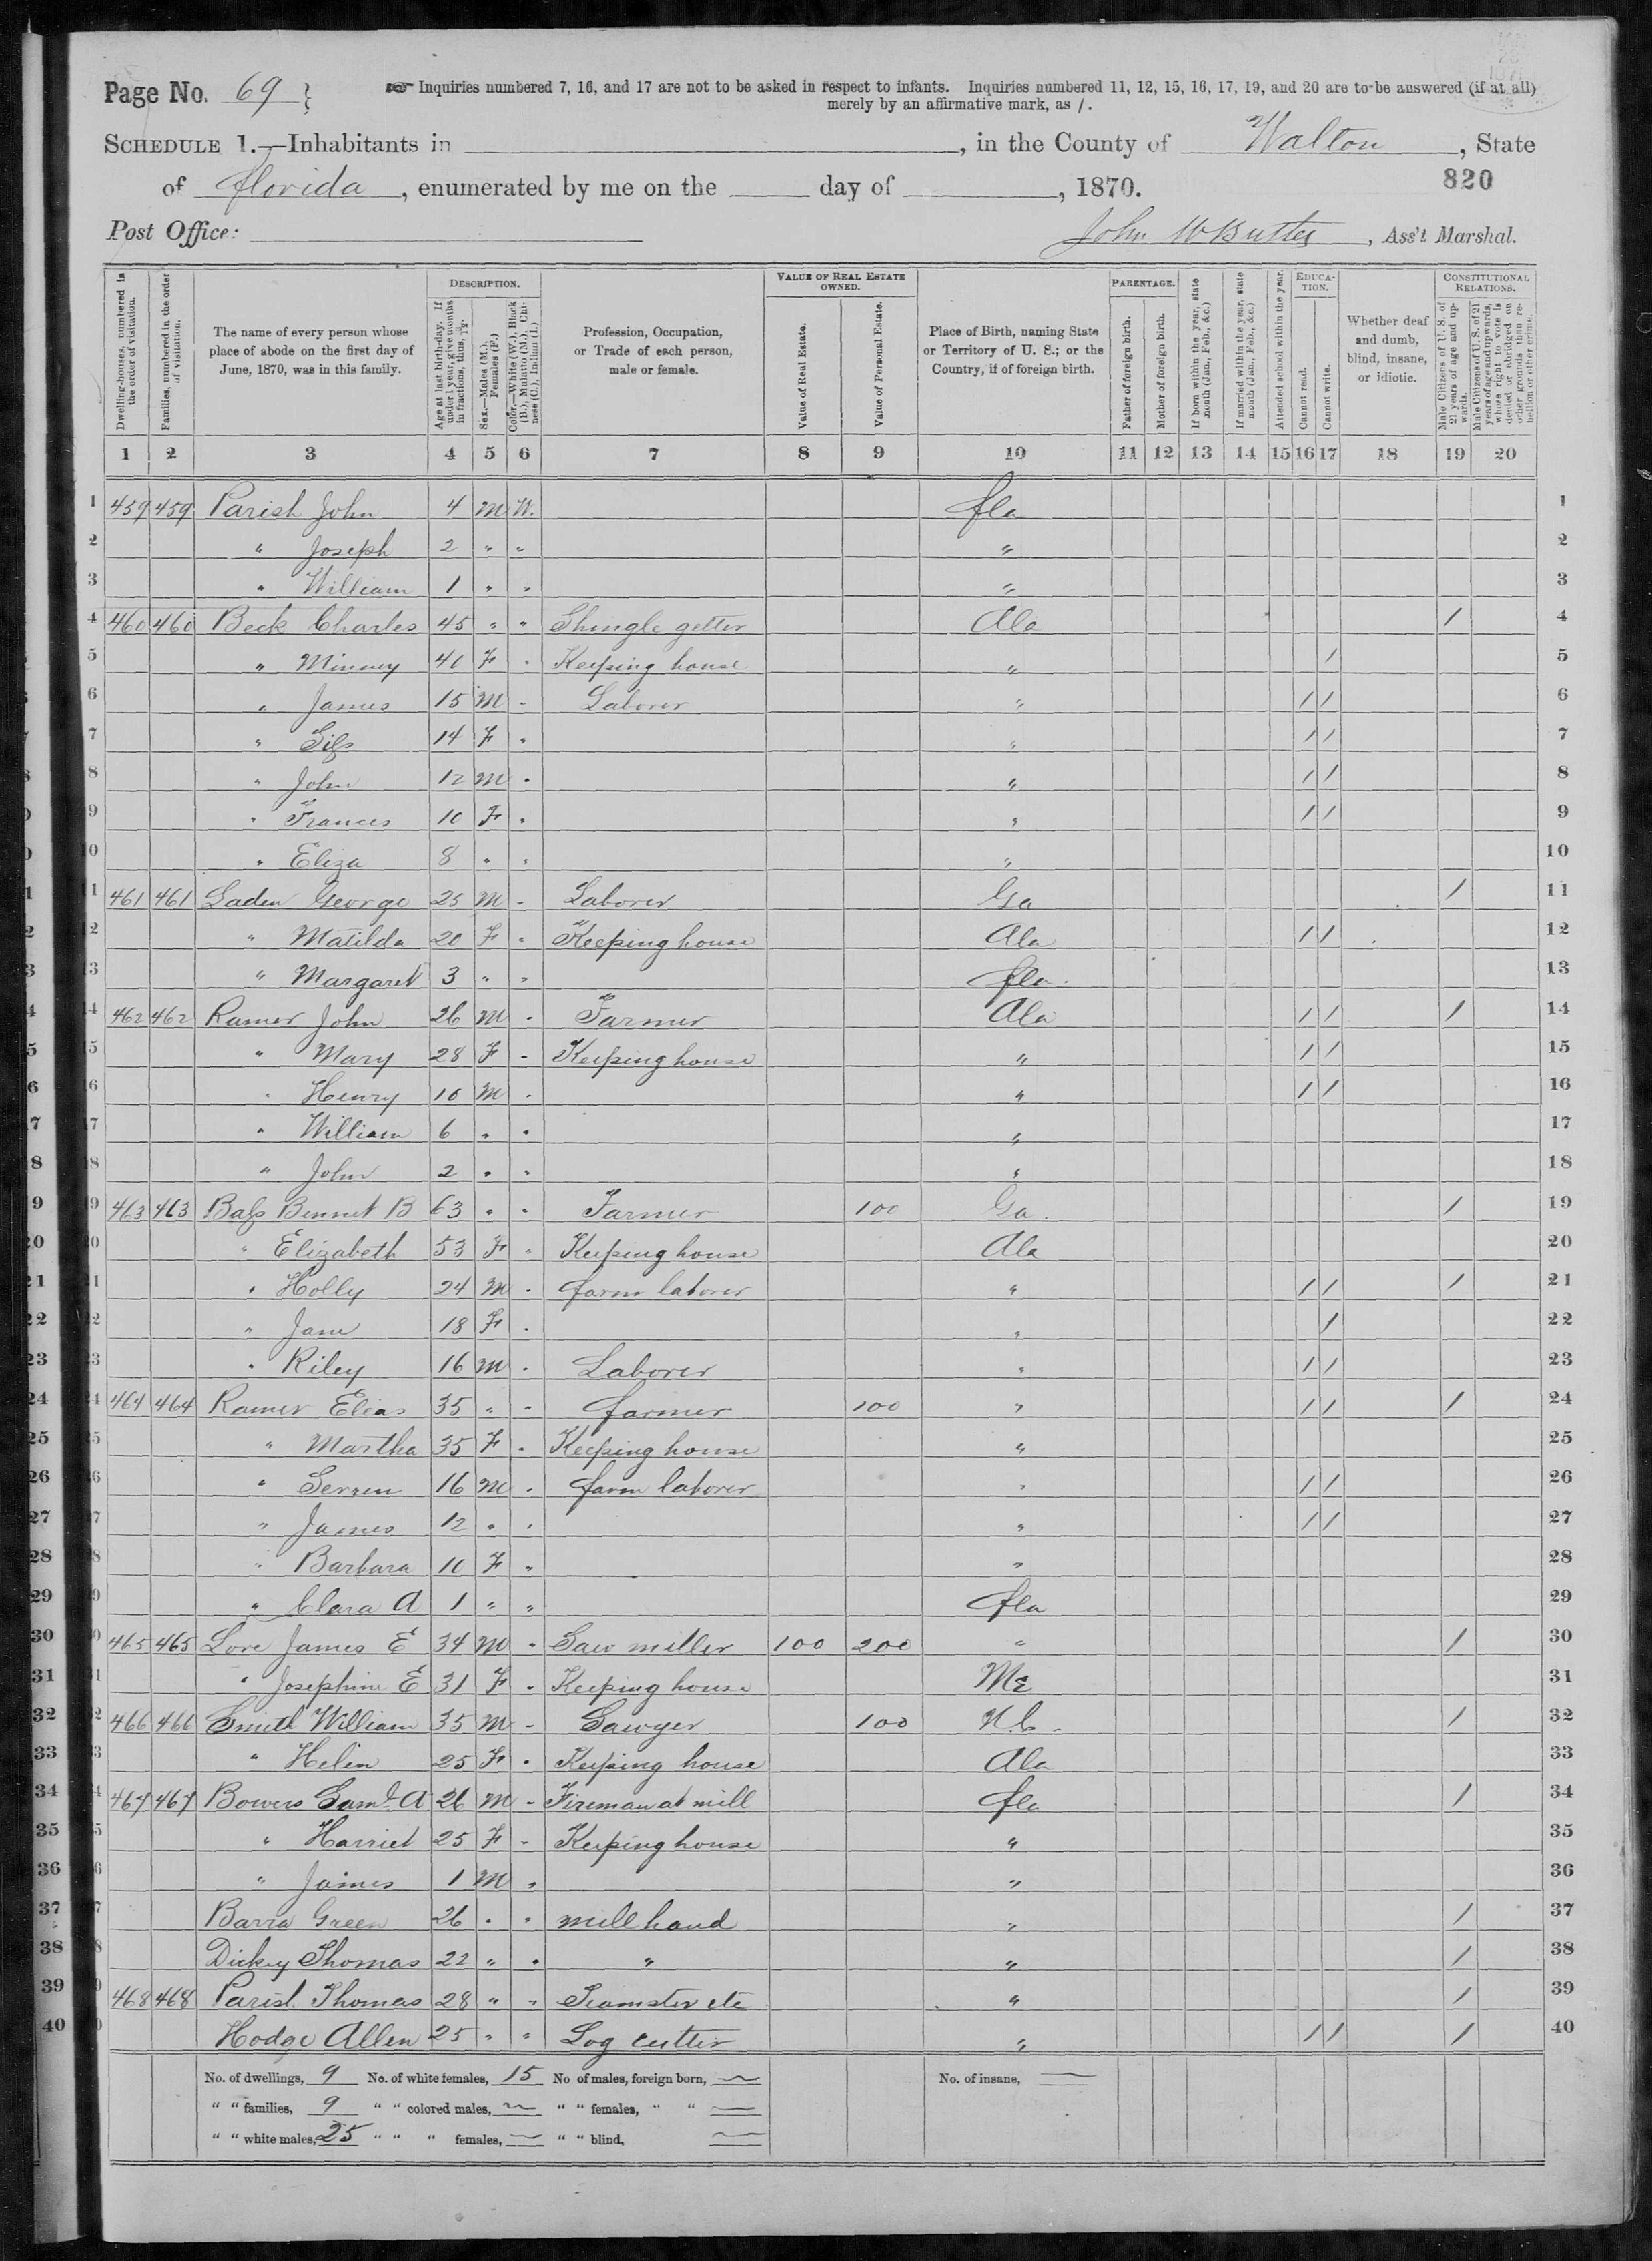 Page No. 69
☞ Inquiries numbered 7, 16, and 17 are not to be asked in respect to infants. Inquiries numbered 11, 12, 15, 16, 17, 19, and 20 are to be answered (if at all)
merely by an affirmative mark, as /.
SCHEDULE 1.—Inhabitants in , in the County of Walton, State
of Florida, enumerated by me on the day of , 1870.
820
Post Office:
John W Butler, Ass't Marshal.
Dwelling-houses, numbered in the order of visitation.
Families, numbered in the order of visitation.
The name of every person whose place of abode on the first day of June, 1870, was in this family.
DESCRIPTION.
Age at last birth-day. If under 1 year, give months in fractions, thus, 3/12.
Sex.—Males (M.), Females (F.)
Color.—White (W.), Black (B.), Mulatto (M.), Chinese (C.), Indian (I.)
Profession, Occupation, or Trade of each person, male or female.
VALUE OF REAL ESTATE OWNED.
Value of Real Estate.
Value of Personal Estate.
Place of Birth, naming State or Territory of U. S.; or the Country, if of foreign birth.
PARENTAGE.
Father of foreign birth.
Mother of foreign birth.
If born within the year, state month (Jan., Feb., &c.)
If married within the year, state month (Jan., Feb., &c.)
Attended school within the year.
EDUCATION.
Cannot read.
Cannot write.
Whether deaf and dumb, blind, insane, or idiotic.
CONSTITUTIONAL RELATIONS.
Male Citizens of U. S. of 21 years of age and upwards.
Male Citizens of U. S. of 21 years of age and upwards, whose right to vote is denied or abridged on other grounds than rebellion or other crime.
1 2 3 4 5 6 7 8 9 10 11 12 13 14 15 16 17 18 19 20
1 459 459 Parish John 4 M W. Fla 1
2 " Joseph 2 " " " 2
3 " William 1 " " " 3
4 460 460 Beck Charles 45 " " Shingle getter Ala / 4
5 " Minney 40 F " Keeping house " / 5
6 " James 15 M " Laborer " / / 6
7 " 14 F " " / / 7
8 " John 12 M " " / / 8
9 " Frances 10 F " " / / 9
10 " Eliza 8 " " " 10
11 461 461 Laden George 25 M " Laborer Ga / 11
12 " Matilda 20 F " Keeping house Ala / / 12
13 " Margaret 3 " " Fla. 13
14 462 462 Ramer John 26 M " Farmer Ala / / / 14
15 " Mary 28 F " Keeping house " / / 15
16 " Henry 10 M " " / / 16
17 " William 6 " " " 17
18 " John 2 " " " 18
19 463 463 Bass Bennet B 63 " " Farmer 100 Ga. / 19
20 " Elizabeth 53 F " Keeping house Ala 20
21 " Holly 24 M " farm laborer " / / / 21
22 " Jane 18 F " " / 22
23 " Riley 16 M " Laborer " / / 23
24 464 464 Ramer Elias 35 " " farmer 100 " / / / 24
25 " Martha 35 F " Keeping house " 25
26 " 16 M " farm laborer " / / 26
27 " James 12 " " " / / 27
28 " Barbara 10 F " " 28
29 " Clara A 1 " " Fla 29
30 465 465 Love James E 34 M " Saw miller 100 200 " / 30
31 " Josephine E 31 F " Keeping house Me 31
32 466 466 Smith William 35 M " Sawyer 100 N C. / 32
33 " Helen 25 F " Keeping house Ala 33
34 467 467 Bowers Saml A 26 M " Fireman at mill Fla / 34
35 " Harriet 25 F " Keeping house " 35
36 " James 1 M " " 36
37 Barra Green 26 " " mill hand " / 37
38 Dickey Thomas 22 " " " " / 38
39 468 468 Parish Thomas 28 " " Teamster etc " / 39
40 Hodge Allen 25 " " Log cutter " / / / 40
No. of dwellings, 9 No. of white females, 15 No of males, foreign born, — No. of insane, —
" " families, 9 " " colored males, — " " females, " " —
" " white males, 25 " " " females, — " " blind, —